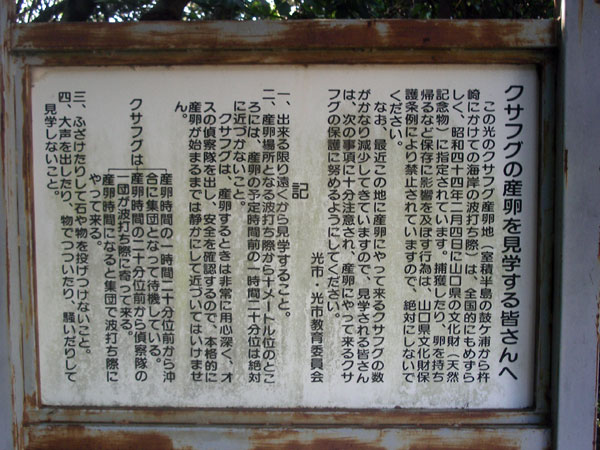 クサフグの産卵を見学する皆さんへ
この光のクサフグ産卵地（室積半島の鼓ヶ浦から杵
崎にかけての海岸の波打ち際）は、全国的にもめずら
しく、昭和四十四年二月四日に山口県の文化財（天然
記念物）に指定されています。捕獲したり、卵を持ち
帰るなど保存に影響を及ぼす行為は、山口県文化財保
護条例により禁止されていますので、絶対にしないで
ください。
なお、最近この地に産卵にやって来るクサフグの数
がかなり減少してきていますので、見学される皆さん
は、次の事項に十分注意され、産卵にやって来るクサ
フグの保護に努めるようにしてください。
光市・光市教育委員会
記
一、出来る限り遠くから見学すること。
二、産卵場所となる波打ち際から十メートル位のとこ
ろには、産卵の予定時間前の一時間二十分位は絶対
に近づかないこと。
クサフグは、産卵するときは非常に用心深く、オ
スの偵察隊を出し、安全を確認するので、本格的に
産卵が始まるまでは静かにして近づいてはいけませ
ん。
クサフグは
産卵時間の一時間二十分位前から沖
合に集団となって待機している。
産卵時間の二十分位前から偵察隊の
一団が波打ち際に寄って来る。
産卵時間になると集団で波打ち際に
やって来る。
三、ふざけたりして石や物を投げつけないこと。
四、大声を出したり、物でつついたり、騒いだりして
見学しないこと。